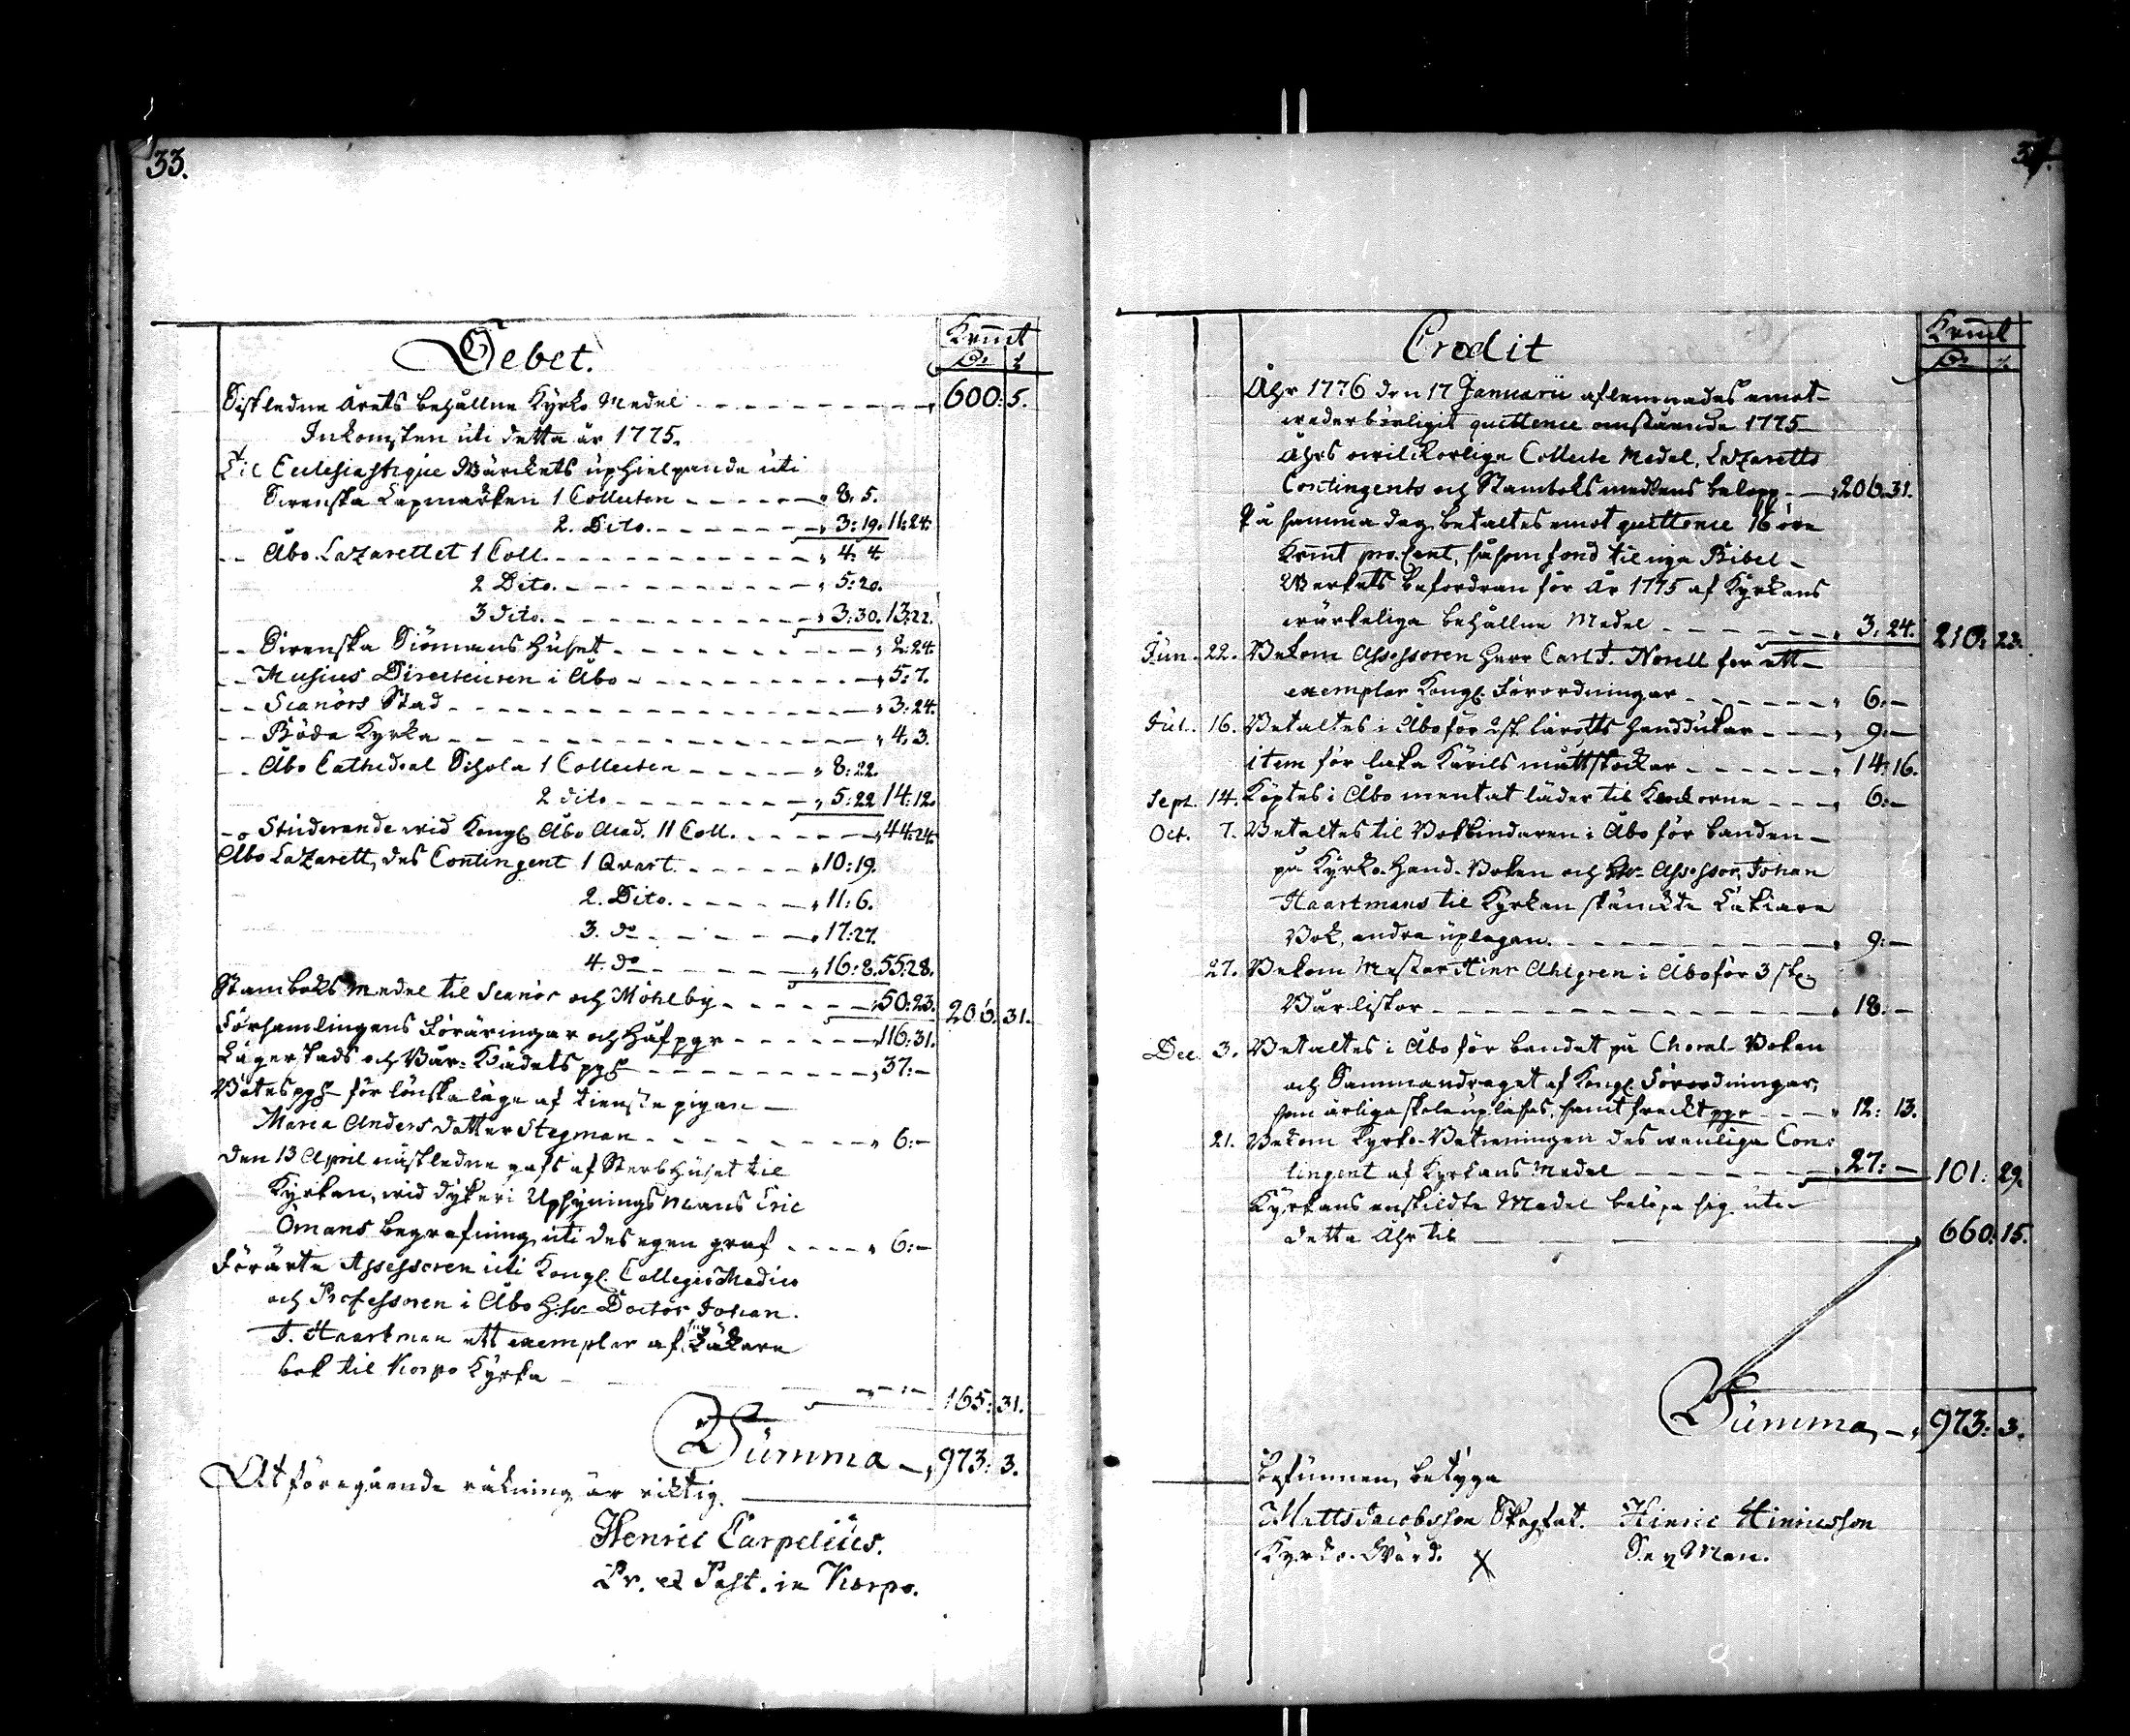 33.
Debet.
Krmt
Sistledne årets behållne Kyrko Medel 600: 5.
Inkomsten uti detta år 1775.
Til Ecclesiastique Wärckets uphielpande uti
Swenska Lapmarken 1 Collecten 8, 5.
2. Dito. 3: 19. 11:24.
Åbo Lazarettet 1 Coll. 4: 4.
2 Dito. 5: 20.
3 dito. 3: 30. 13:22.
Swenska Siömans Huset 2:24.
Musius Directeuren i Åbo 5: 7.
Scanörs Stad 3: 24.
Böda Kyrka 4, 3.
Åbo Cathedral Schola 1 Collecten 8: 22.
2 dito 5: 22 14: 12.
Studerande wid Kongl. Åbo Acad. 11 Coll. 44:24.
Åbo Lazarett, des Contingent 1 Qvart. 10: 19.
2. Dito. 11: 6.
3. do 17: 27.
4. do 16: 8. 55:28.
Stamboks medel til Scanör och Möhlby 50: 23. 206: 31.
Församlingens Föräringar och Håfpgr 116: 31.
Lägerstads och Bår-Klädets pgr 37: -
Bötespgr för lönskaläge af tienste pigan
Maria Anders dotter Stegman 6: -
den 13 April nästledne gafs af Sterbhuset til
Kyrkan, wid dykeri Uphynings Mans Eric
Ömans begrafning uti des egen graf 6: -
Förärte Assessoren uti Kongl. Collegio Medico
och Professoren i Åbo H:hr Doctor Johan
J. Haartman ett exemplar af sin Läkare
bok til Korpo Kyrka - : -
165: 31.
Summa 973: 3.
At föregående räkning är riktig.
Henric Carpelius.
Pr. et Past. in Korpo.
34.
Credit
Krmt
Åhr 1776 den 17 Januarii aflemnades emot
wederbörligit quittence omstående 1775
Åhrs owilkorlige Collecte Medel, Lazaretts
Contingents och Stamboksmedlens belopp 206: 31.
På samma dag betaltes emot quittence 16 öre
Krmt pro Cent, såsom fond til nya Bibel
Werkets befordran för år 1775 af Kyrkans
wärkeliga behållne Medel 3: 24. 210: 23.
Jun. 22. Bekom Assessoren Herr Carl J. Norell för ett
exemplar Kongl. Förordningar 6: -
Jul. 16. Betaltes i Åbo för 2 st. lärofts handdukar 9: -
item för läcka Kärils måttstockar 14: 16.
Sept. 14. Köptes i Åbo mentat läder til Klockorne 6: -
Oct. 7. Betaltes til Bokbindaren i Åbo för banden
på Kyrko-Hand-Boken och Hr Assessor Johan
Haartmans til Kyrkan skänckte Läkiare
Bok, andra uplagan. 9: -
27. Bekom Mester Hinr Ahlgren i Åbo för 3 st.
Bårlistor 18: -
Dec. 3. Betaltes i Åbo för bandet på Choral-Boken
och Sammandraget af Kongl. Förordningar,
som årliga skola upläsas, samt fracktpgr 12: 13.
21. Bekom Kyrko-Betieningen des wanliga Con:
tingent af Kyrkans Medel 27: - 101: 29.
Kyrkans enskildte Medel belöpa sig uti
detta Åhr til 660: 15.
Summa 973: 3.
befunnen, betyga
Matts Jacobsson Hinric Hinricsson
Kyrko-Wärd. X Sex Man.